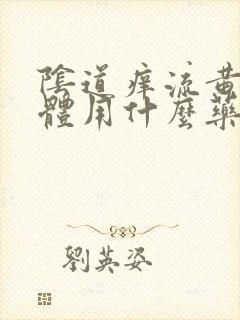 陰道痒流黃
體用什麼藥
劉英姿